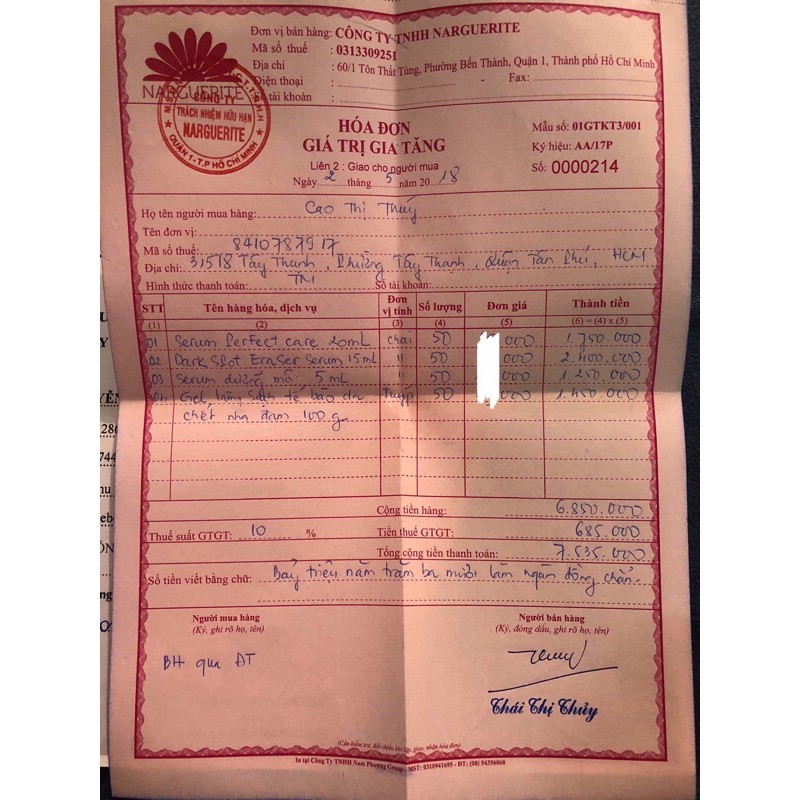 Đơn vị bán hàng: CÔNG TY TNHH NARGUERITE
Mã số thuế : 0313309251
Địa chỉ : 60/1 Tôn Thất Tùng, Phường Bến Thành, Quận 1, Thành phố Hồ Chí Minh
Điện thoại : - Fax:
Số tài khoản :
NARGUERITE
CÔNG TY
TRÁCH NHIỆM HỮU HẠN
NARGUERITE
QUẬN 1 - T.P HỒ CHÍ MINH
HÓA ĐƠN
GIÁ TRỊ GIA TĂNG
Liên 2 : Giao cho người mua
Ngày 2 tháng 5 năm 2018
Mẫu số: 01GTKT3/001
Ký hiệu: AA/17P
Số: 0000214
Họ tên người mua hàng: Cao Thị Thuý
Tên đơn vị:
Mã số thuế: 8410787917
Địa chỉ: Tây Thạnh, Phường Tây Thạnh, Quận Tân Phú, HCM
Hình thức thanh toán: TM Số tài khoản:
STT Tên hàng hóa, dịch vụ Đơn vị tính Số lượng Đơn giá Thành tiền
(1) (2) (3) (4) (5) (6) = (4) x (5)
01 Serum Perfect care 20mL chai 50 000 1.750.000
02 Dark Spot Eraser Serum 15mL " 50 000 2.400.000
03 Serum dưỡng môi 5mL " 50 000 1.250.000
04 Gel làm sạch tế bào da Tuýp 50 000 1.450.000
chết nha đam 100g
Cộng tiền hàng: 6.850.000
Thuế suất GTGT: 10 % Tiền thuế GTGT: 685.000
Tổng cộng tiền thanh toán: 7.535.000
Số tiền viết bằng chữ: Bảy triệu năm trăm ba mươi lăm ngàn đồng chẵn.
Người mua hàng
(Ký, ghi rõ họ, tên)
Người bán hàng
(Ký, đóng dấu, ghi rõ họ, tên)
BH qua ĐT
Thái Thị Thủy
(Cần kiểm tra, đối chiếu khi lập, giao, nhận hóa đơn)
In tại Công Ty TNHH Nam Phương Group - MST: 0310941695 - ĐT: (08) 54356068